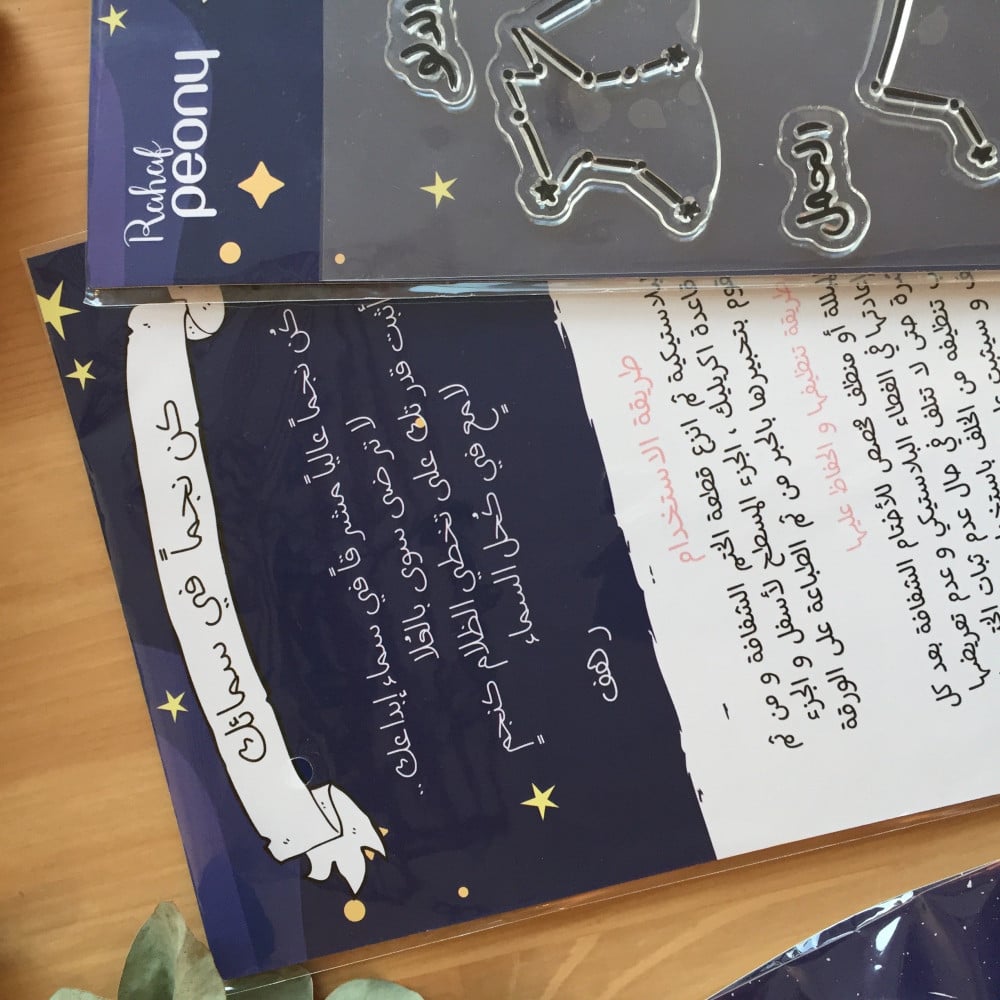 Rahaf
peony
الدلو
الحمل
كن نجماً في سمائك
كُن نجماً عالياً مشرقاً في سماء إبداعك..
لا ترضى سوى بالعُلا
أثبت قدرتك على تخطي الظلام كنجمٍ
لامعٍ في كُحل السماء
رهف
طريقة الاستخدام
البلاستيكية ثم انزع قطعة الختم الشفافة و من ثم
قاعدة اكريليك ، الجزء المسطح لأسفل و الجزء
قوم بتحبيرها بالحبر من ثم الطباعة على الورقة
طريقة تنظيفها و الحفاظ عليها
مبللة أو منظف مخصص للأختام الشفافة بعد كل
إعادتها في الغطاء البلاستيكي و عدم تعريضها
حتى لا تتلف في حال عدم ثبات
تنظيفه من الخلف